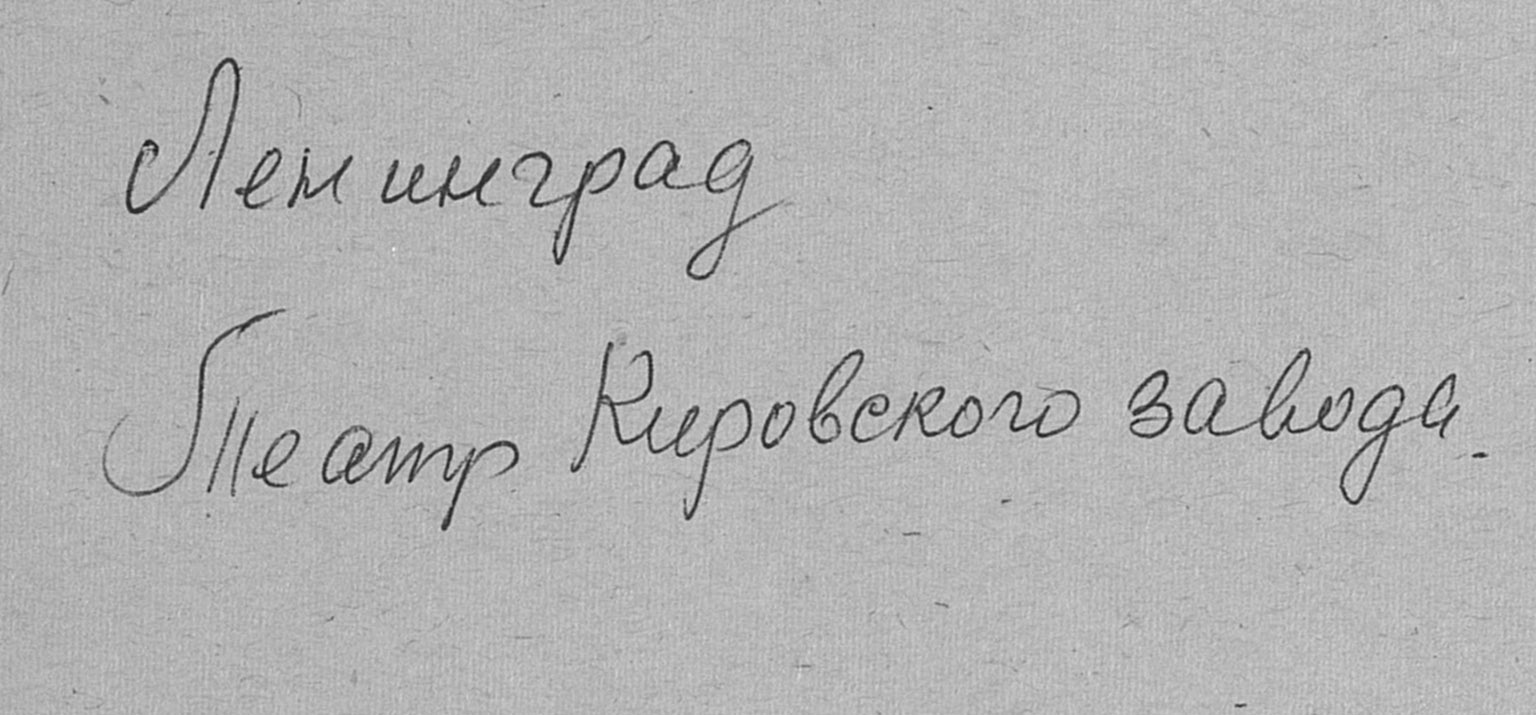 Ленинград
Театр Кировского завода.